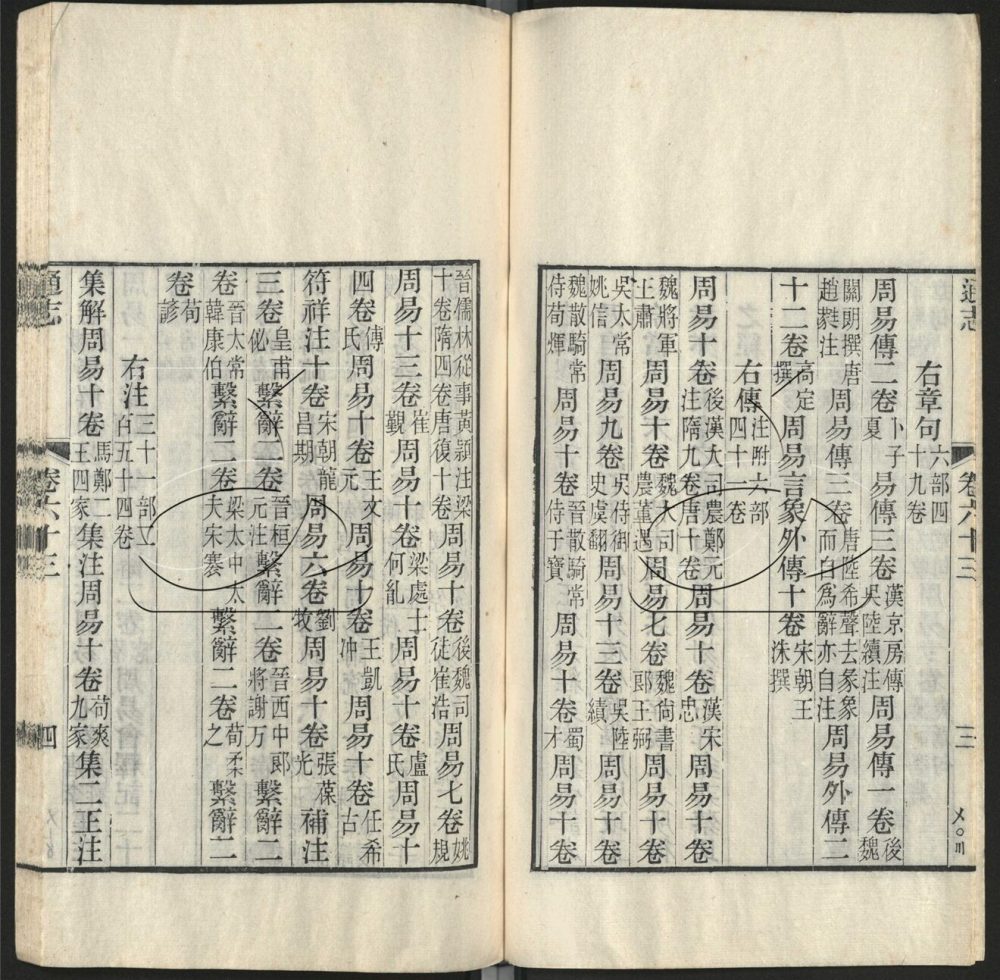 通志 卷六十三 三
右章句六部四十九卷
周易傳二卷卜子夏 易傳三卷漢京房傳吳陸績注 周易傳一卷後魏
關朗撰唐趙蕤注 周易傳三卷唐陸希聲去彖象而自為辭亦自注 周易外傳二
十二卷高定撰 周易言象外傳十卷宋朝王洙撰
右傳注附六部四十卷
周易十卷後漢大司農鄭元注隋九卷唐十卷 周易十卷漢宋忠 周易十卷
魏將軍王肅 周易十卷魏大司農董遇 周易七卷魏尚書郎王弼 周易十卷
吳太常姚信 周易九卷吳侍御史虞翻 周易十三卷吳陸績 周易十卷
魏散騎常侍荀煇 周易十卷晉散騎常侍于寶 周易十卷蜀才 周易十卷
晉儒林從事黃穎注梁十卷隋四卷唐復十卷 周易十卷後魏司徒崔浩 周易七卷姚規
周易十三卷崔覲 周易十卷梁處士何胤 周易十卷盧氏 周易十
四卷傅氏 周易十卷王又元 周易十卷王凱沖 周易十卷任希古
符祥注十卷宋朝龍昌期 周易六卷劉牧 周易十卷張葆光 補注
三卷皇甫佖 繫辭二卷晉桓元注 繫辭二卷晉西中郎將謝万 繫辭二
卷晉太常韓康伯 繫辭二卷梁太中大夫宋褰 繫辭二卷荀柔之 繫辭二
卷荀諺
右注三十一部二百五十四卷
集解周易十卷馬鄭二王四家 集注周易十卷荀爽九家 集二王注
通志 卷六十三 四